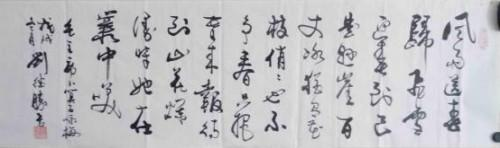 風雨送春
歸飛雪
迎春到已
是懸崖百
丈冰猶有花
枝俏俏也不
爭春只把
春來報待
到山花爛
漫時她在
叢中笑
毛主席卜算子咏梅
戊戌
劉德勝書